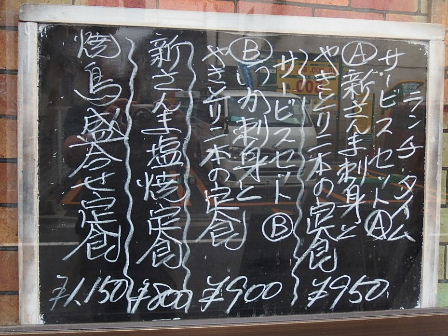 ランチタイム
サービスセットⒶ
Ⓐ新さんま刺身と
やきとり二本の定食
¥950
サービスセットⒷ
Ⓑいか刺身と
やきとり二本の定食
¥900
新さんま塩焼定食
¥800
焼鳥盛合せ定食
¥1,150